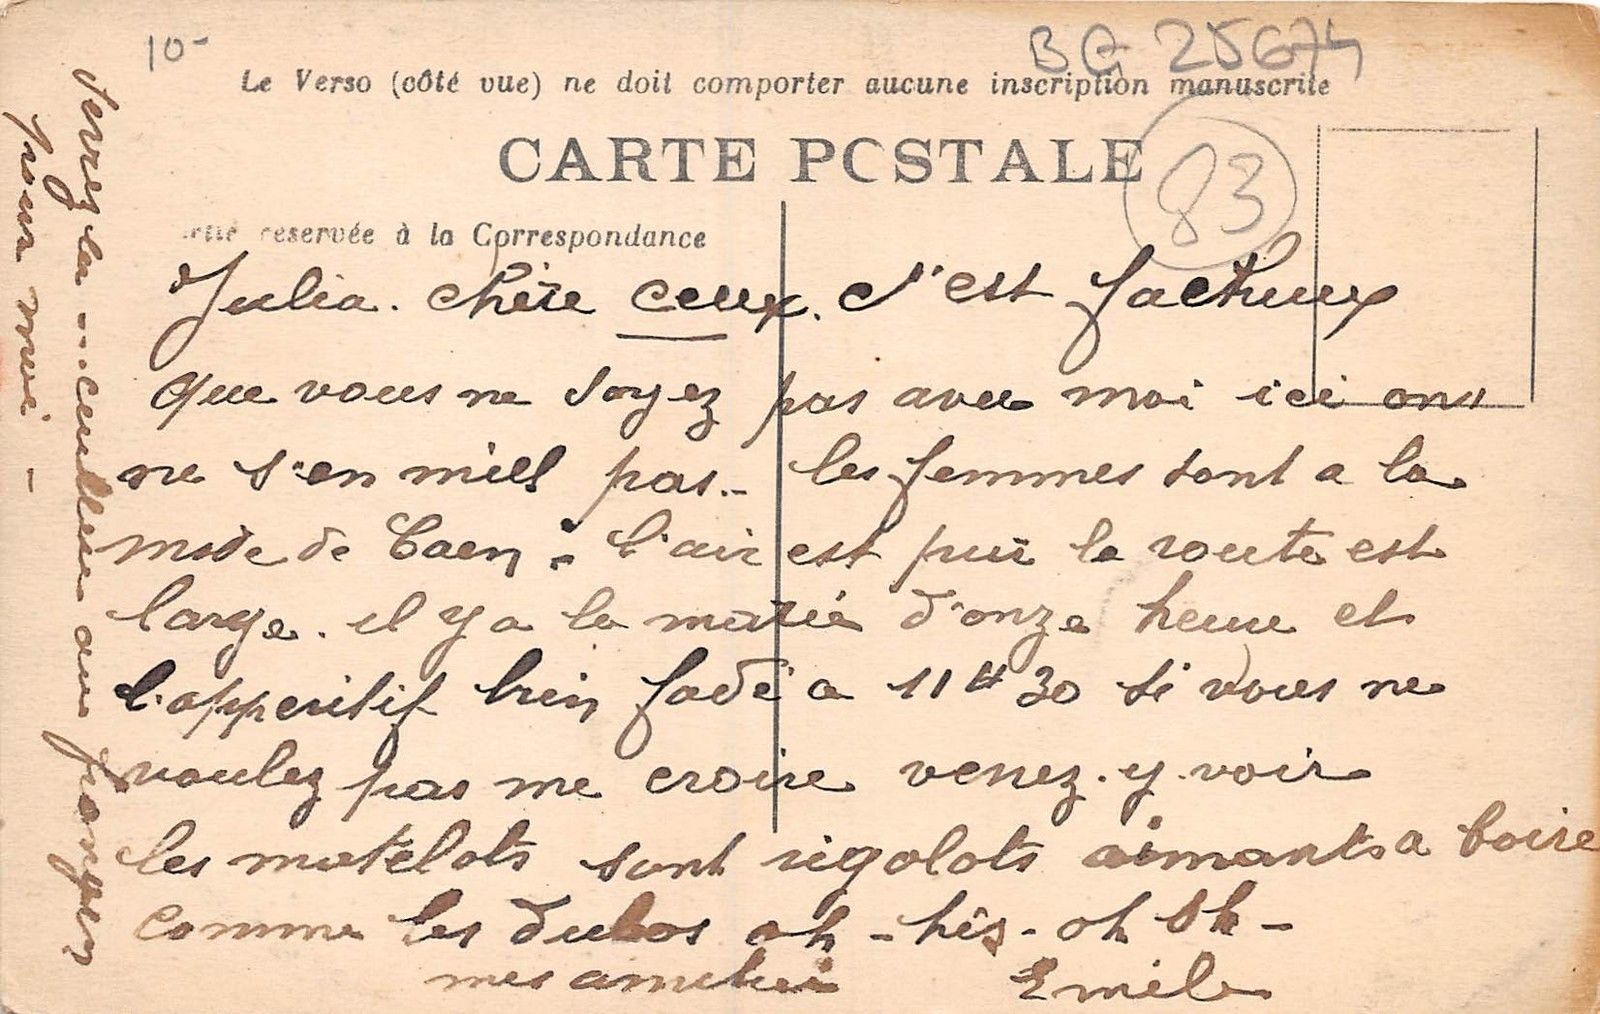 10-
BG 25674
Le Verso (côté vue) ne doit comporter aucune inscription manuscrite
CARTE POSTALE
83
réservée à la Correspondance
Julia. chère ceux. c'est facheux
que vous ne soyez pas avec moi ici on
ne s'en miel pas.- les femmes sont a la
mode de Caen. l'air est pur la route est
large. il y a la d'onze heure et
l'apperitif bien fadé a 11 H 30 si vous ne
voulez pas me croire venez. y. voir
les matelots sont rigolots aimants a boire
comme les dubos oh - his - oh oh -
mes amitiés Emile
Serrez la ... cuillère au
pour moi -